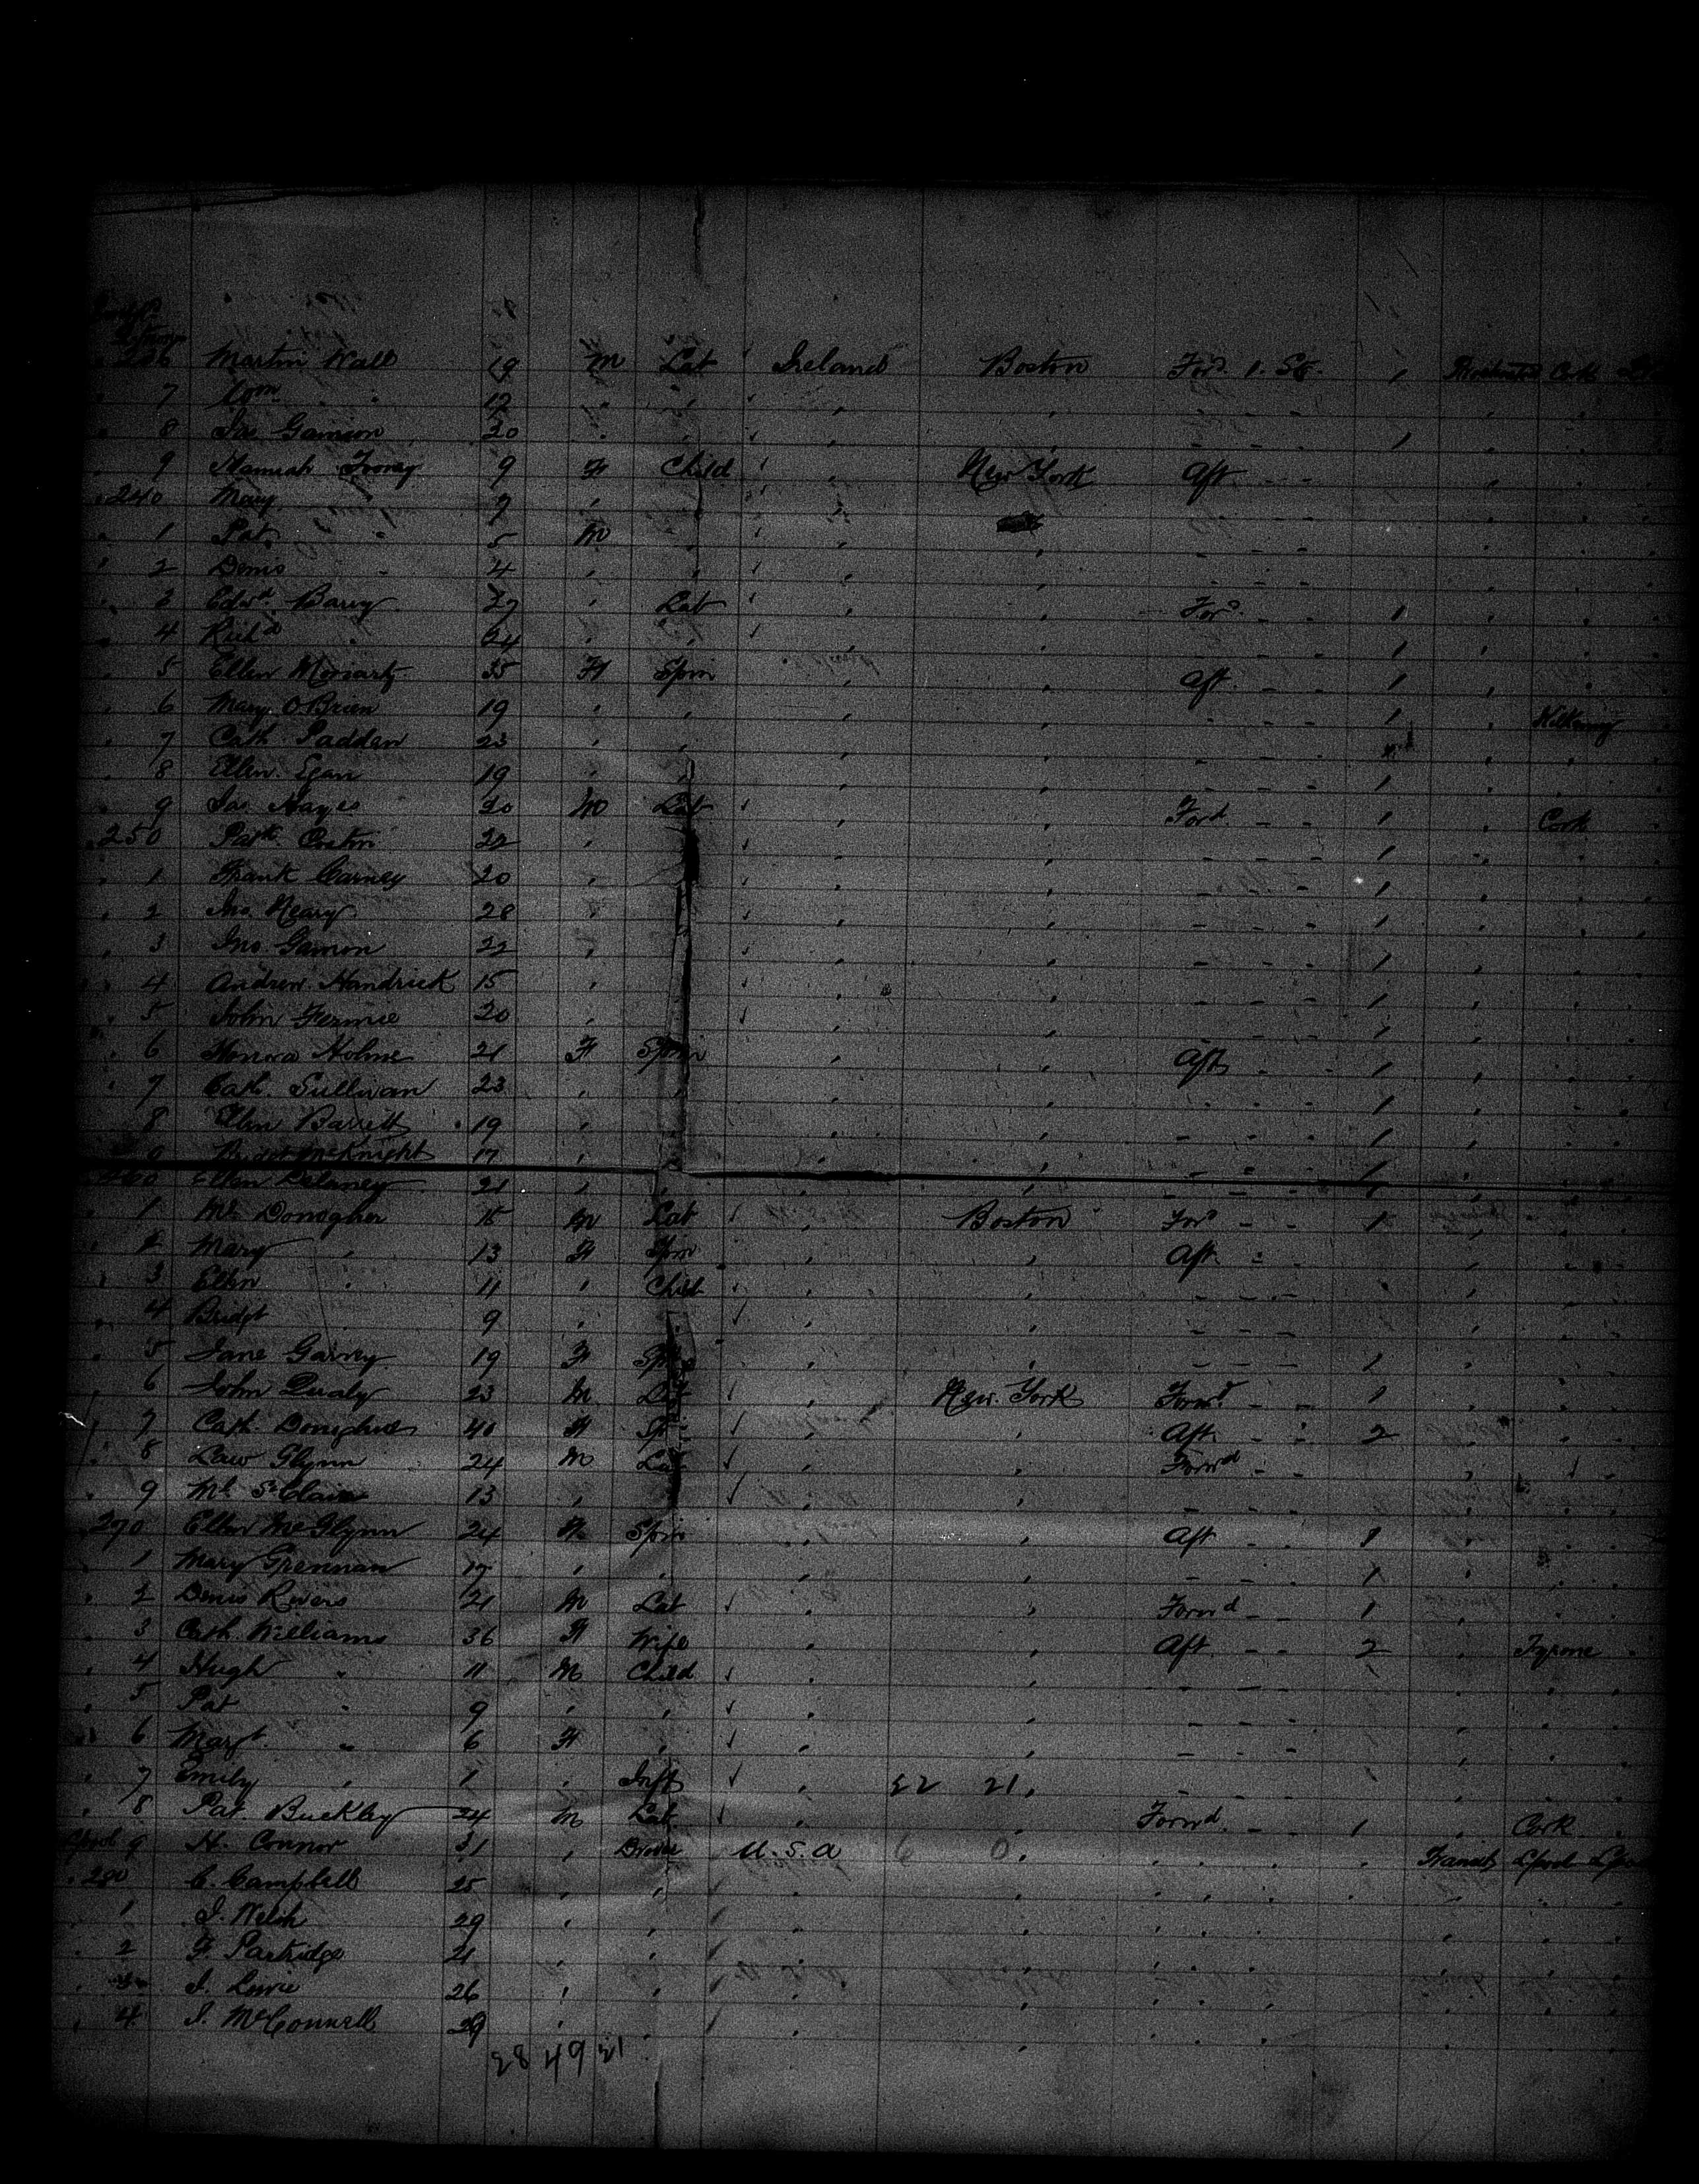 236 Martin Wall 19 M Lab Ireland Boston For'd 1. Stg. 1 Cork
7 Wm " 12
8 Jas Gannon 20 1
9 Hannah 9 F Child New York Aft
240 Mary " 7
1 Pat " 5 M
2 Denis " 4
3 Edwd Barry 27 Lab For'd 1
4 Richd " 24 1
5 Ellen Moriarty 35 F Spin Aft 1
6 Mary O'Brien 19 1 Kilkenny
7 Cath Padden 23
8 Ellen Egan 19 1
9 Jas Hayes 20 M Lab Ford 1 Cork
250 Patk 22 1
1 Frank Carney 20 1
2 Jno. Neary 28 1
3 Jno. Gannon 22 1
4 Andrew Handrick 15 1
5 John 20 1
6 Honora Holme 21 F Spin Aft 1
7 Cath. Sullivan 23 1
8 Ellen Barrett 19 1
9 Bridet McKnight 17 1
260 Ellen Delaney 21 1
1 Ml Donagher 15 M Lab Boston For'd 1
2 Mary " 13 F Spin Aft
3 Ellen " 11 Child
4 Bridgt 9
5 Jane Garvey 19 F Spin 1
6 John Qualy 23 M Lab New York Forwd 1
7 Cath. Donaghue 40 F Aft 2
8 Law Glynn 24 M Lab Forwd
9 Ml St Clair 13
270 Ellen McGlynn 24 F Spin Aft 1
1 Mary Grennan 17 1
2 Denis Rivers 21 M Lab Forwd 1
3 Cath. Williams 36 F Wife Aft 2 Tyrone
4 Hugh " 11 M Child
5 Pat " 9
6 Margt " 6 F
7 Emily " 1 Inft 22 21
8 Pat. Buckley 24 M Lab Forwd 1 Cork
9 H. Connor 31 U.S.A 6 0 Transit Lpool
280 C. Campbell 25
1 J. Welsh 29
2 F. Partridge 21
3 J. Lowie 26
4 J. McConnell 29
28 49 21